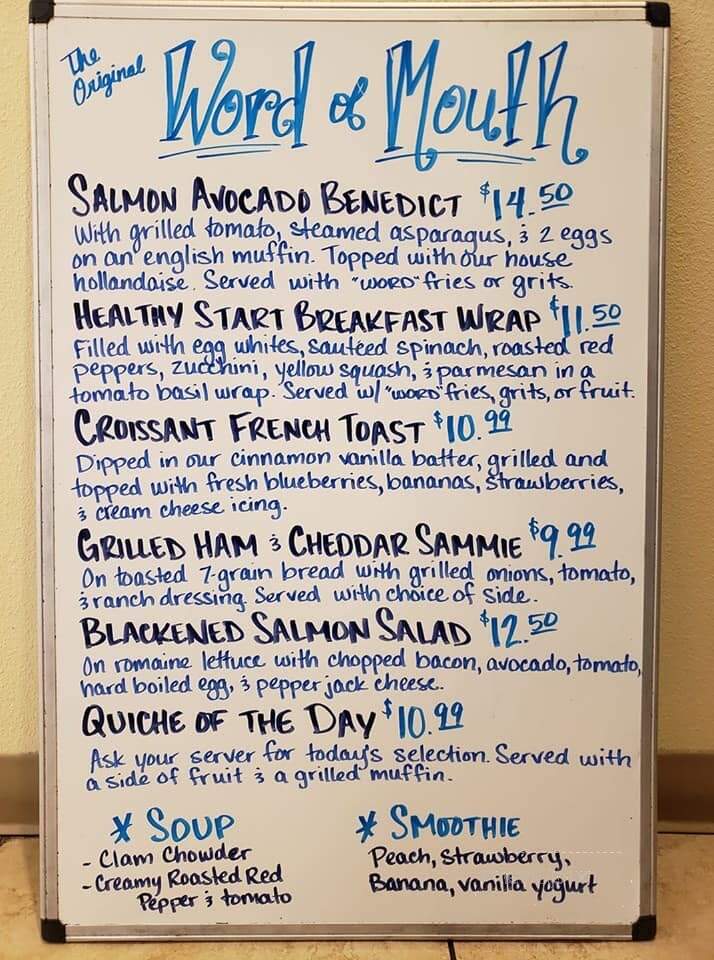 The Original
Word of Mouth
SALMON AVOCADO BENEDICT $14.50
With grilled tomato, steamed asparagus, & 2 eggs
on an english muffin. Topped with our house
hollandaise. Served with "WORD" fries or grits.
HEALTHY START BREAKFAST WRAP $11.50
Filled with egg whites, sautéed spinach, roasted red
peppers, zucchini, yellow squash, & parmesan in a
tomato basil wrap. Served w/ "WORD" fries, grits, or fruit.
CROISSANT FRENCH TOAST $10.99
Dipped in our cinnamon vanilla batter, grilled and
topped with fresh blueberries, bananas, strawberries,
& cream cheese icing.
GRILLED HAM & CHEDDAR SAMMIE $9.99
On toasted 7-grain bread with grilled onions, tomato,
& ranch dressing. Served with choice of side.
BLACKENED SALMON SALAD $12.50
On romaine lettuce with chopped bacon, avocado, tomato,
hard boiled egg, & pepper jack cheese.
QUICHE OF THE DAY $10.99
Ask your server for today's selection. Served with
a side of fruit & a grilled muffin.
* SOUP
- Clam Chowder
- Creamy Roasted Red
Pepper & tomato
* SMOOTHIE
Peach, strawberry,
Banana, vanilla yogurt